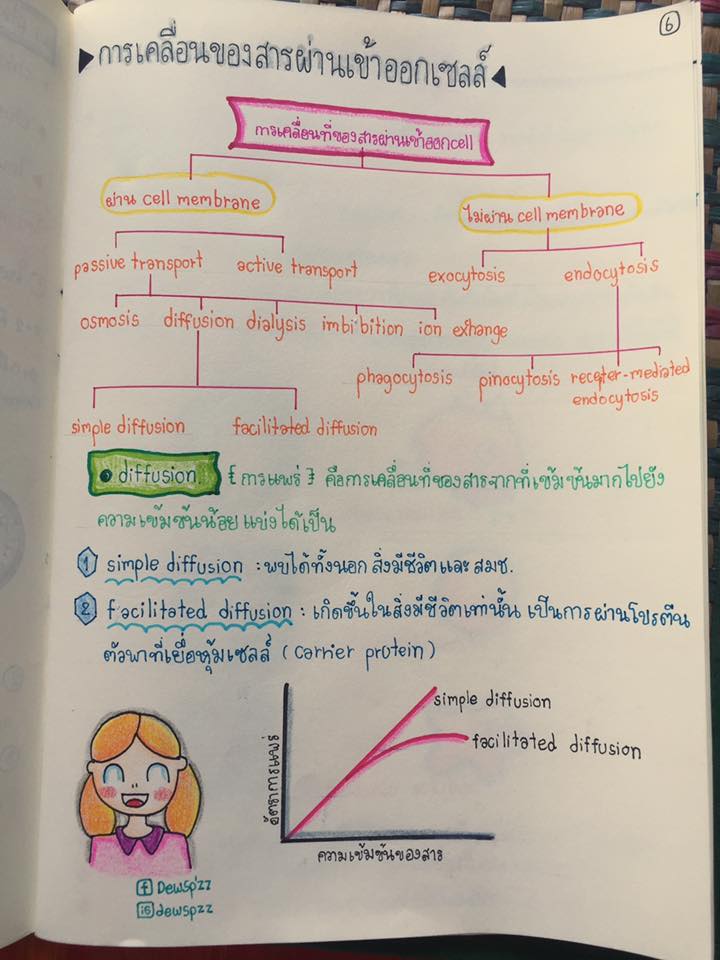 6
การเคลื่อนของสารผ่านเข้าออกเซลล์
การเคลื่อนที่ของสารผ่านเข้าออกcell
ผ่าน cell membrane
ไม่ผ่าน cell membrane
passive transport active transport exocytosis endocytosis
osmosis diffusion dialysis imbibition ion exhange
phagocytosis pinocytosis recepter-mediated
endocytosis
simple diffusion facilitated diffusion
diffusion { การแพร่ } คือการเคลื่อนที่ของสารจากที่เข้มข้นมากไปยัง
ความเข้มข้นน้อย แบ่งได้เป็น
1 simple diffusion : พบได้ทั้งนอก สิ่งมีชีวิต และ สมช.
2 facilitated diffusion : เกิดขึ้นในสิ่งมีชีวิตเท่านั้น เป็นการผ่านโปรตีน
ตัวพาที่เยื่อหุ้มเซลล์ ( carrier protein )
simple diffusion
facilitated diffusion
อัตราการแพร่
ความเข้มข้นของสาร
f Dewsp'zz
IG dewspzz